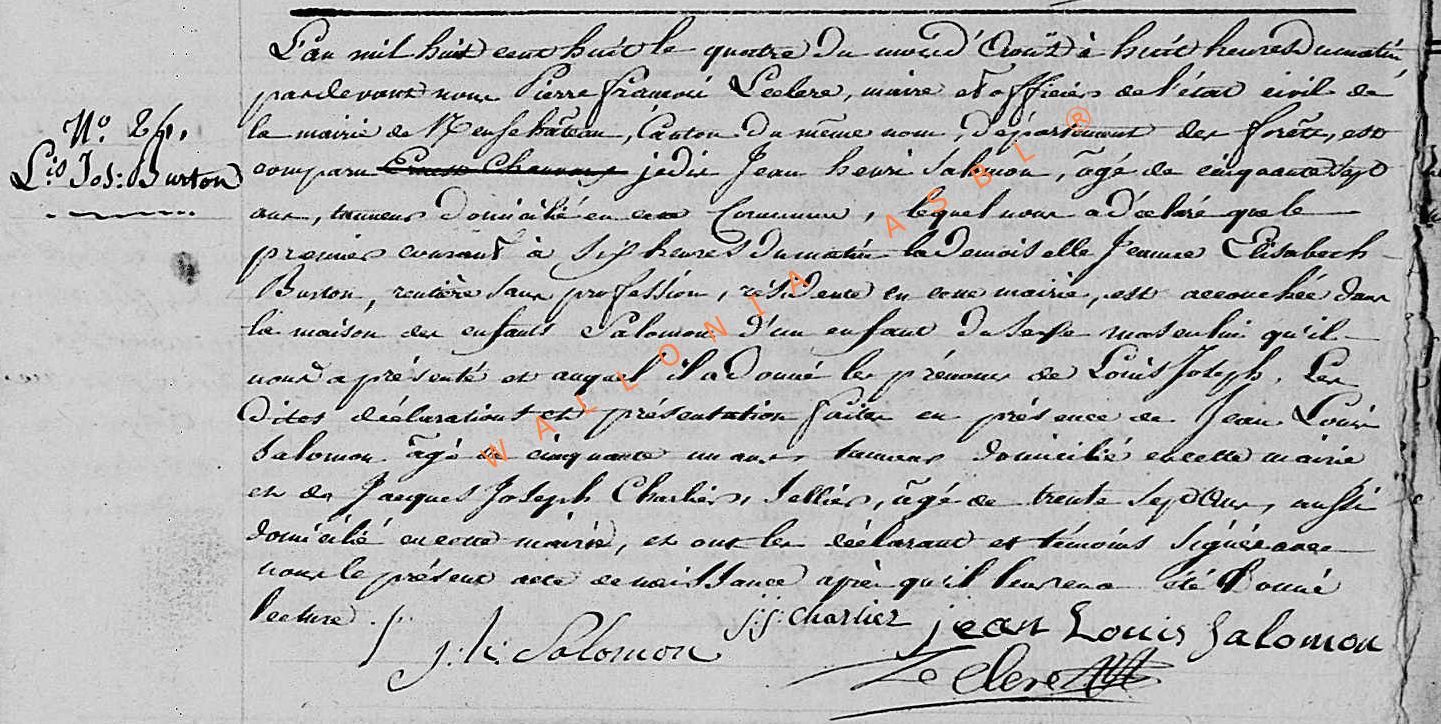 N.º 24.
L.is Jos: Burton
L'an mil huit cent huit le quatre du mois d'Août à huit heures du matin
pardevant nous Pierre françois Leclere, maire et officier de l'état civil de
la mairie de Neufchâteau, Canton du même nom, département des forêts, est
comparu je dis Jean henri Salomon, âgé de cinquante sept
ans, tanneur domicilié en cette Commune, lequel nous a déclaré que le
premier courant à six heures du matin la demoiselle Jeanne Elisabeth
Burton, rentière sans profession, résidente en cette mairie, est accouchée dans
la maison des enfants Salomon d'un enfant du sexe masculin qu'il
nous a présenté et auquel il a donné les prénoms de Louis Joseph. Les
dites déclarations et présentation faites en présence de Jean Louis
Salomon âgé de cinquante un ans, tanneur domicilié en cette mairie
et de Jacques Joseph Charlier, sellier, âgé de trente sept ans, aussi
domicilié en cette mairie, et ont les déclarant et témoins signés avec
nous le présent acte de naissance après qu'il leur en a été donné
lecture ./.
j. h. Salomon
j. j. Charlier
jean Louis Salomon
Leclere
WALLONIA ASBL ®